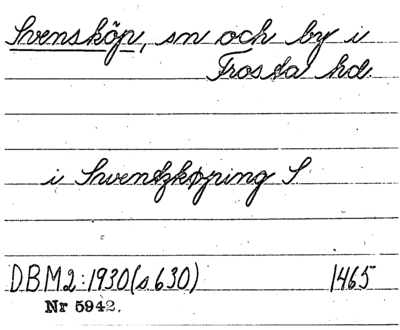 Svensköp, sn och by i
Frosta hd.
i Swendzkøping S
DBM2:1930(s630) 1465
Nr 5942.